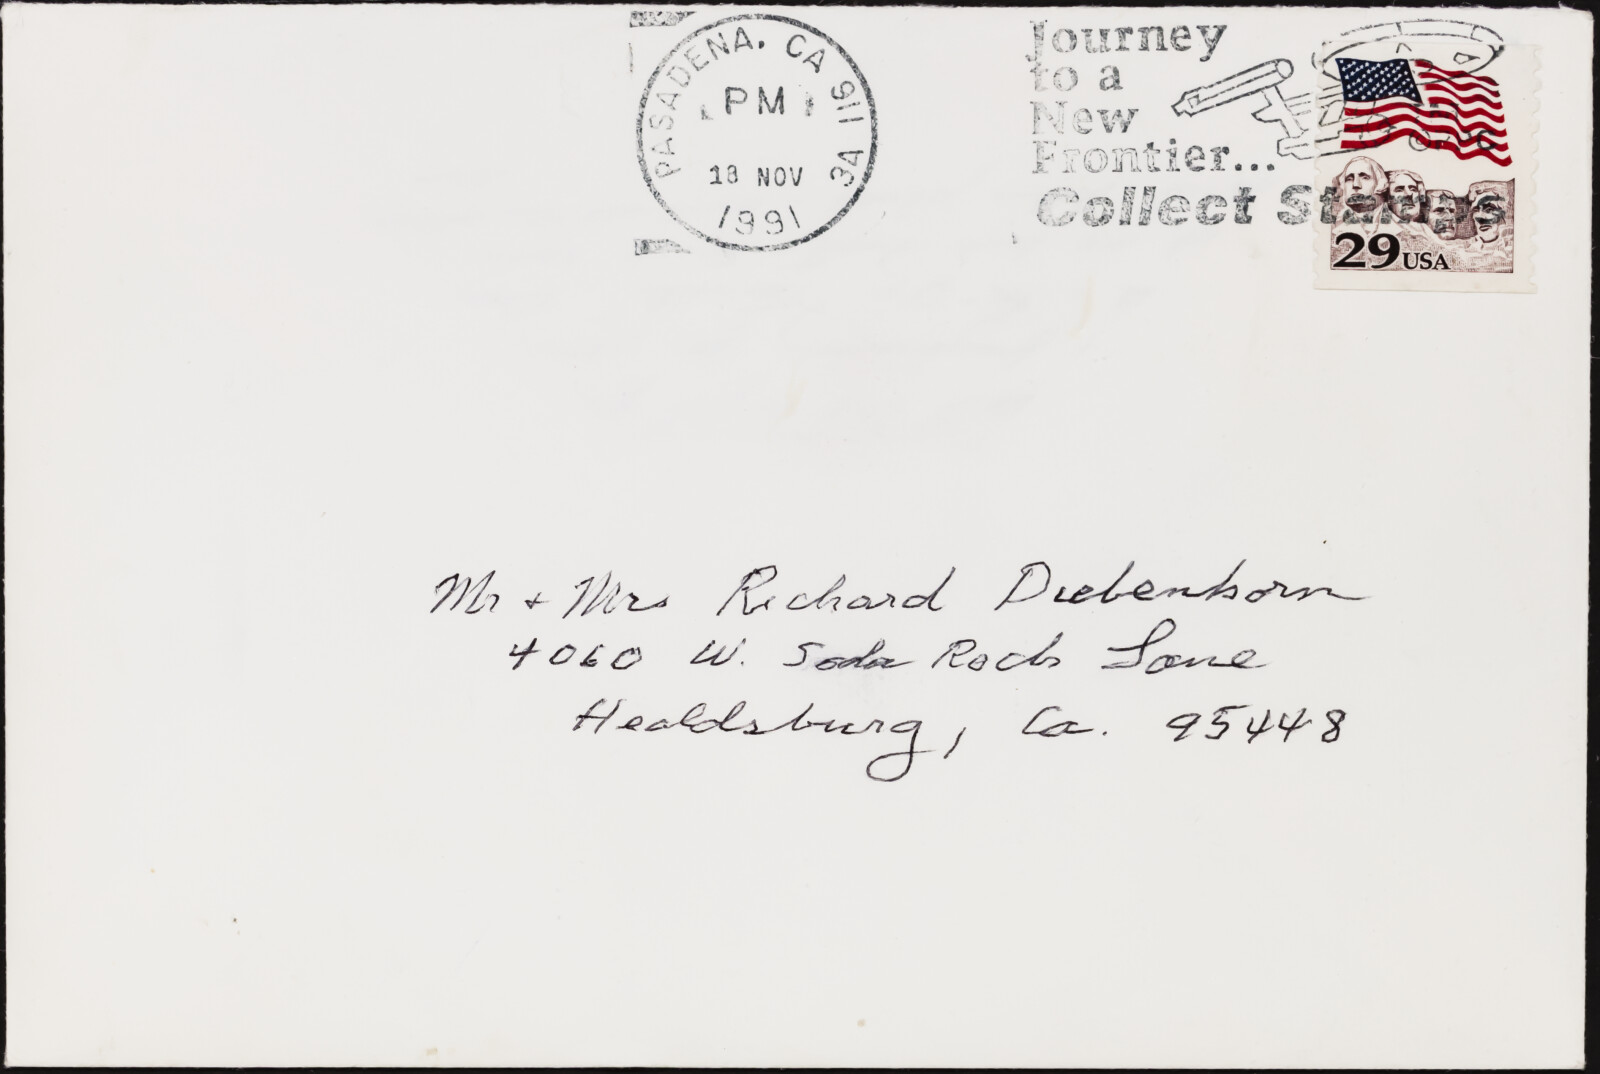 PASADENA, CA 911 3A
PM
18 NOV
1991
Journey
to a
New
Frontier...
Collect Stamps
29 USA
Mr + Mrs Richard Diebenkorn
4060 W. Soda Rock Lane
Healdsburg, Ca. 95448